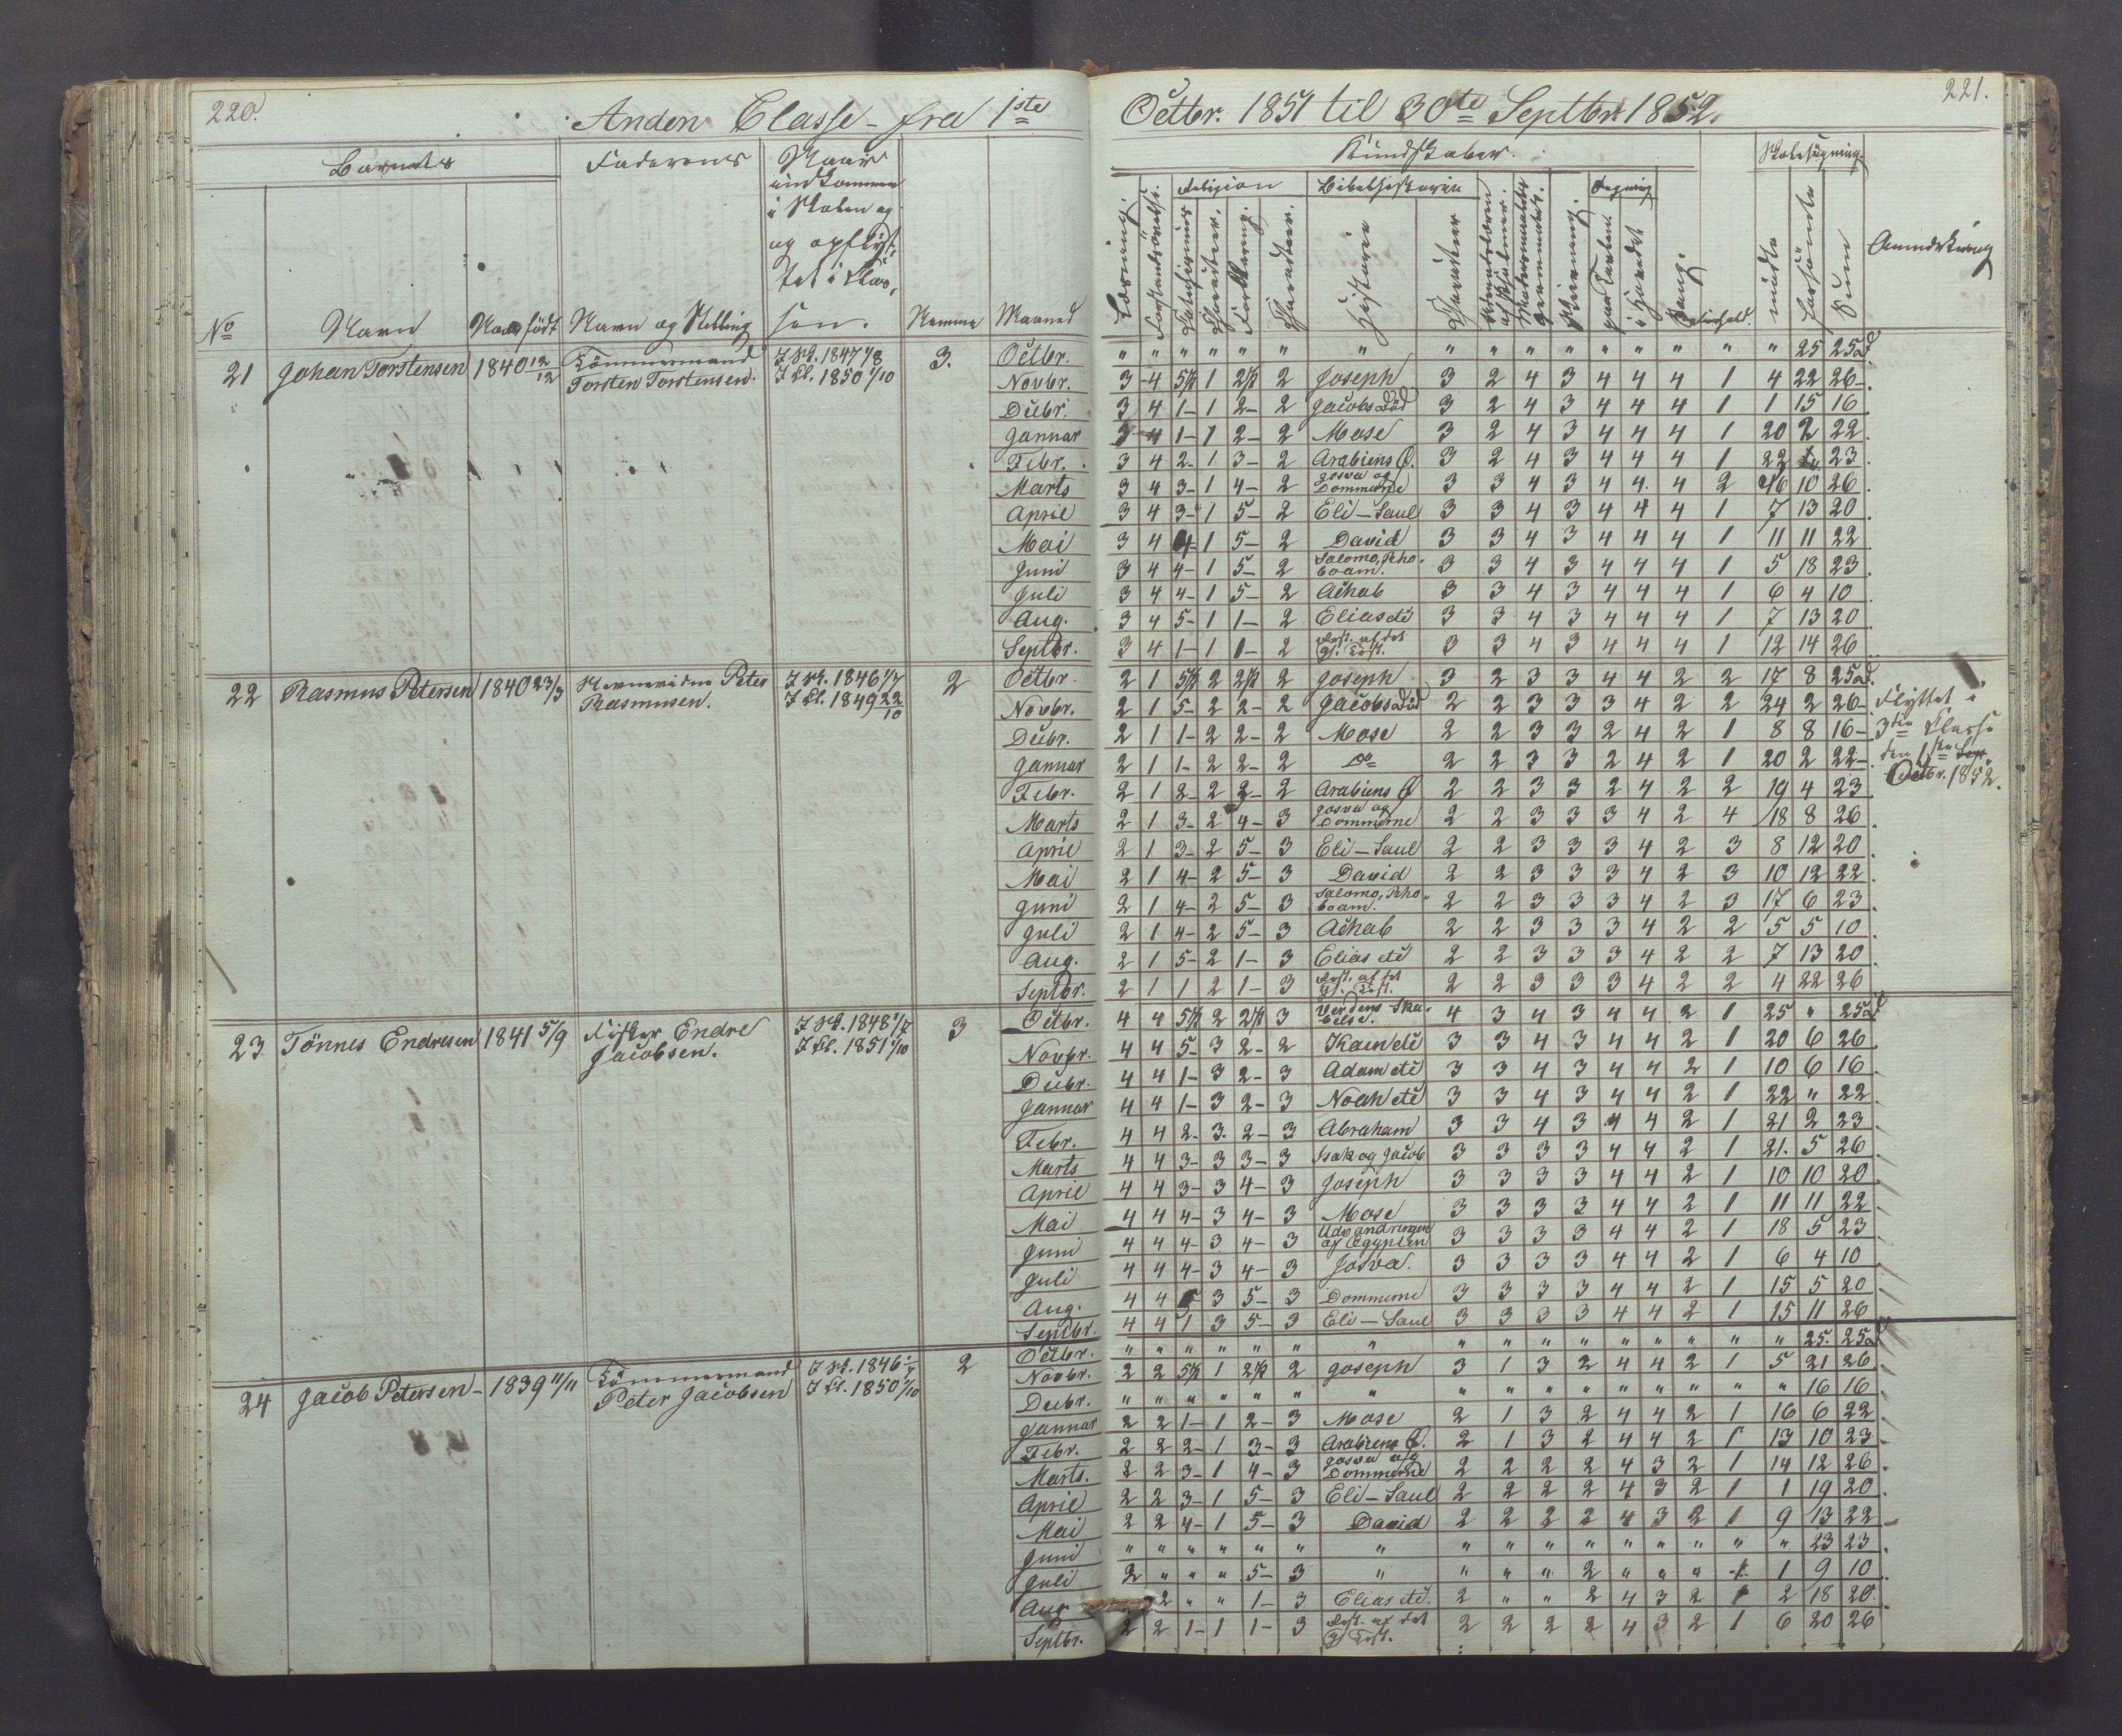 220.
Anden Classe - fra 1ste
Barnets
Faderens
Naar
indkommen
i Skolen og
og opflyt-
tet i Clas-
sen.
No
Navn
Naar født
Navn og Stilling
Nemme
Maaned
21 Johan Torstensen 1840 12/12 Tömmermand
Torsten Torstensen.
I Sk. 1847 1/8
I Cl. 1850 1/10
3.
Octbr.
Novbr.
Decbr.
Januar
Febr.
Marts
April
Mai
Juni
Juli
Aug.
Septbr.
22 Rasmus Petersen 1840 23/3 Peter
Rasmusen.
I Sk. 1846 1/7
I Cl. 1849 22/10
2
Octbr.
Novbr.
Decbr.
Januar
Febr.
Marts
April
Mai
Juni
Juli
Aug.
Septbr.
23 Tönnes Endresen 1841 5/9 Fisker Endre
Jacobsen.
I Sk. 1848 1/7
I Cl. 1851 1/10
3
Octbr.
Novbr.
Decbr.
Januar
Febr.
Marts
April
Mai
Juni
Juli
Aug.
Septbr.
24 Jacob Petersen - 1839 11/11 Tömmermand
Peter Jacobsen
I Sk. 1846
I Cl. 1850 1/10
2
Octbr.
Novbr.
Decbr.
Januar
Febr.
Marts.
April
Mai
Juni
Juli
Aug
Septbr.
221.
Octbr. 1851 til 30te Septbr. 1852.
Kundskaber.
Skolesøgning.
Læsning.
Forstandsøvelse.
Religion
Bibelhistorie
Regning
Forklaring.
Historie
Skrivning.
paa Tavlen
i Hovedet
Sang.
Forhold.
mødte
forsømte
Sum
Anmærkning
" " " " " " " " " " " " " " " " 25 25 d
3 4 5½ 1 2½ 2 Joseph 3 2 4 3 4 4 4 1 4 22 26
3 4 1- 1 2- 2 Jacobs Död 3 2 4 3 4 4 4 1 1 15 16
3 4 1- 1 2- 2 Mose 3 2 4 3 4 4 4 1 20 2 22
3 4 2- 1 3- 2 Arabiens Ø. 3 2 4 3 4 4 4 1 22 1 23
3 4 3- 1 4- 2 Josva og Dommerne 3 3 4 3 4 4 4 2 16 10 26
3 4 3- 1 5- 2 Eli - Saul 3 3 4 3 4 4 4 1 7 13 20
3 4 4- 1 5- 2 David 3 3 4 3 4 4 4 1 11 11 22
3 4 4- 1 5- 2 Salomo, Rho- boam. 3 3 4 3 4 4 4 1 5 18 23
3 4 4- 1 5- 2 Achab 3 3 4 3 4 4 4 1 6 4 10
3 4 5- 1 1- 2 Elias etc 3 3 4 3 4 4 4 1 7 13 20
3 4 1- 1 1- 2 Rest. af det Gl. Test. 3 3 4 3 4 4 4 1 12 14 26
2 1 5½ 2 2½ 2 Joseph 3 2 3 3 4 4 2 2 17 8 25 d.
2 1 5- 2 2- 2 Jacobs Död 2 2 3 3 3 4 2 2 24 2 26
2 1 1- 2 2- 2 Mose 2 2 3 3 2 4 2 1 8 8 16
2 1 1- 2 2- 2 Do 2 2 3 3 2 4 2 1 20 2 22
2 1 2- 2 2- 2 Arabiens Ø 2 2 3 3 2 4 2 2 19 4 23
2 1 3- 2 4- 3 Josva og Dommerne 2 2 3 3 3 4 2 4 18 8 26
2 1 3- 2 5- 3 Eli - Saul 2 2 3 3 3 4 2 3 8 12 20
2 1 4- 2 5- 3 David 2 2 3 3 3 4 2 3 10 12 22
2 1 4- 2 5- 3 Salomo, Rho- boam. 2 2 3 3 3 4 2 3 17 6 23
2 1 4- 2 5- 3 Achab 2 2 3 3 3 4 2 2 5 5 10
2 1 5- 2 1- 3 Elias etc 2 2 3 3 3 4 2 2 7 13 20
2 1 1 2 1- 3 Rest. af det Gl. Test. 2 2 3 3 3 4 2 2 4 22 26
Flyttet i
3die Classe
den 1ste Sept.
Octbr. 1852.
4 4 5½ 2 2½ 3 Verdens Ska- belse. 4 3 4 3 4 4 2 1 25 " 25 d
4 4 5- 3 2- 2 Kain etc 3 3 4 3 4 4 2 1 20 6 26
4 4 1- 3 2- 3 Adam etc 3 3 4 3 4 4 2 1 10 6 16
4 4 1- 3 2- 3 Noah etc 3 3 4 3 4 4 2 1 22 " 22
4 4 2- 3- 2- 3 Abraham 3 3 4 3 4 4 2 1 21 2 23
4 4 3- 3 3- 3 Isak og Jacob 3 3 3 3 4 4 2 1 21. 5 26
4 4 3- 3 4- 3 Joseph 3 3 3 3 4 4 2 1 10 10 20
4 4 4- 3 4- 3 Mose 3 3 3 3 4 4 2 1 11 11 22
4 4 4- 3 4- 3 Udvandringen af Egypten 3 3 3 3 4 4 2 1 18 5 23
4 4 4- 3 4- 3 Josva. 3 3 3 3 4 4 2 1 6 4 10
4 4 5 3 5- 3 Dommerne 3 3 3 3 4 4 2 1 15 5 20
4 4 1 3 5- 3 Eli - Saul 3 3 3 3 4 4 2 1 15 11 26
" " " " " " " " " " " " " " " " 25. 25 d
2 2 5½ 1 2½ 2 Joseph 3 1 3 2 4 4 2 1 5 21 26
" " " " " " " " " " " " " " " " 16 16
2 2 1- 1 2- 3 Mose 2 1 3 2 4 4 2 1 16 6 22
2 2 2- 1 3- 3 Arabiens Ø. 2 1 3 2 4 4 2 1 13 10 23
2 2 3- 1 4- 3 Josva og Dommerne 2 2 2 2 4 3 2 1 14 12 26
2 2 3- 1 5- 3 Eli - Saul 2 2 2 2 4 3 2 1 1 19 20
2 2 4- 1 5- 3 David 2 2 2 2 4 3 2 1 9 13 22
" " " " " " " " " " " " " " " " 23 23
2 " " " 5- 3 " " " " 2 " " " 1 1 9 10
2 " " 1- 3 Elias etc. 2 " " 2 4 3 2 1 2 18 20
2 2 1- 1 1- 3 Rest. af det Gl. Test. 2 2 2 2 4 3 2 1 6 20 26